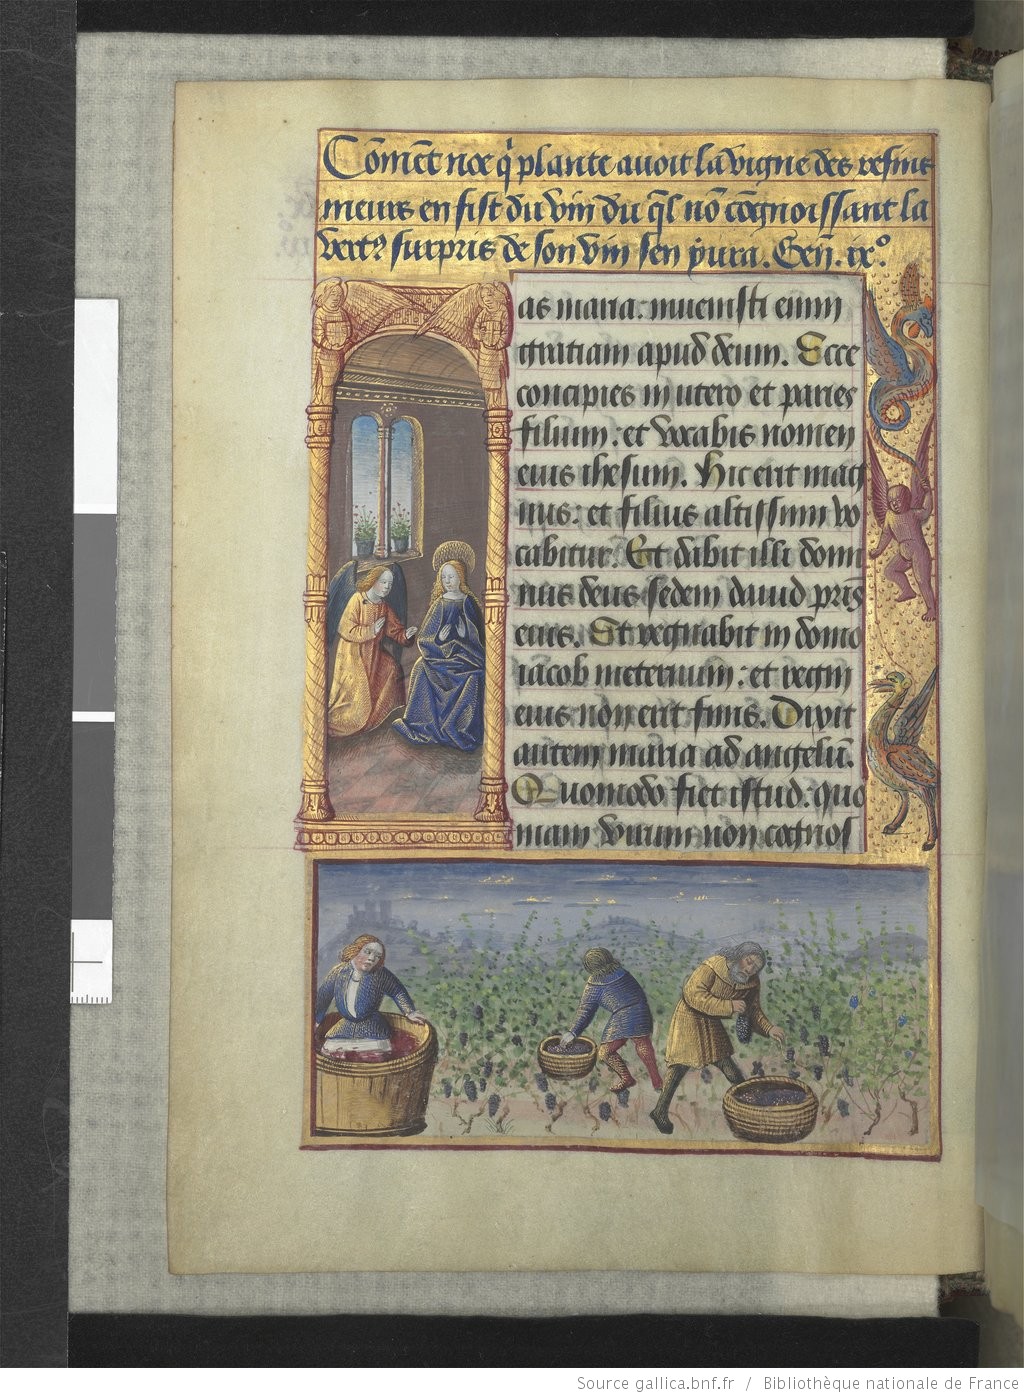 Cōmēt noe q̄ plante auoit la vigne des resins
meurs en fist du vin du q̄l nō cōgnoissant la
vertꝰ surpris de son vin sen yura. Geñ. ixº.
as maria: inuenisti enim
gratiam apud deum. Ecce
concipies in utero et paries
filium: et vocabis nomen
eius ihesum. Hic erit mag
nus: et filius altissimi vo
cabitur. Et dabit illi domi
nus deus sedem dauid pr̄is
eius. Et regnabit in domo
iacob in eternum: et regni
eius non erit finis. Dixit
autem maria ad angelū.
Quomodo fiet istud: quo
niam virum non cognos
Source gallica.bnf.fr / Bibliothèque nationale de France